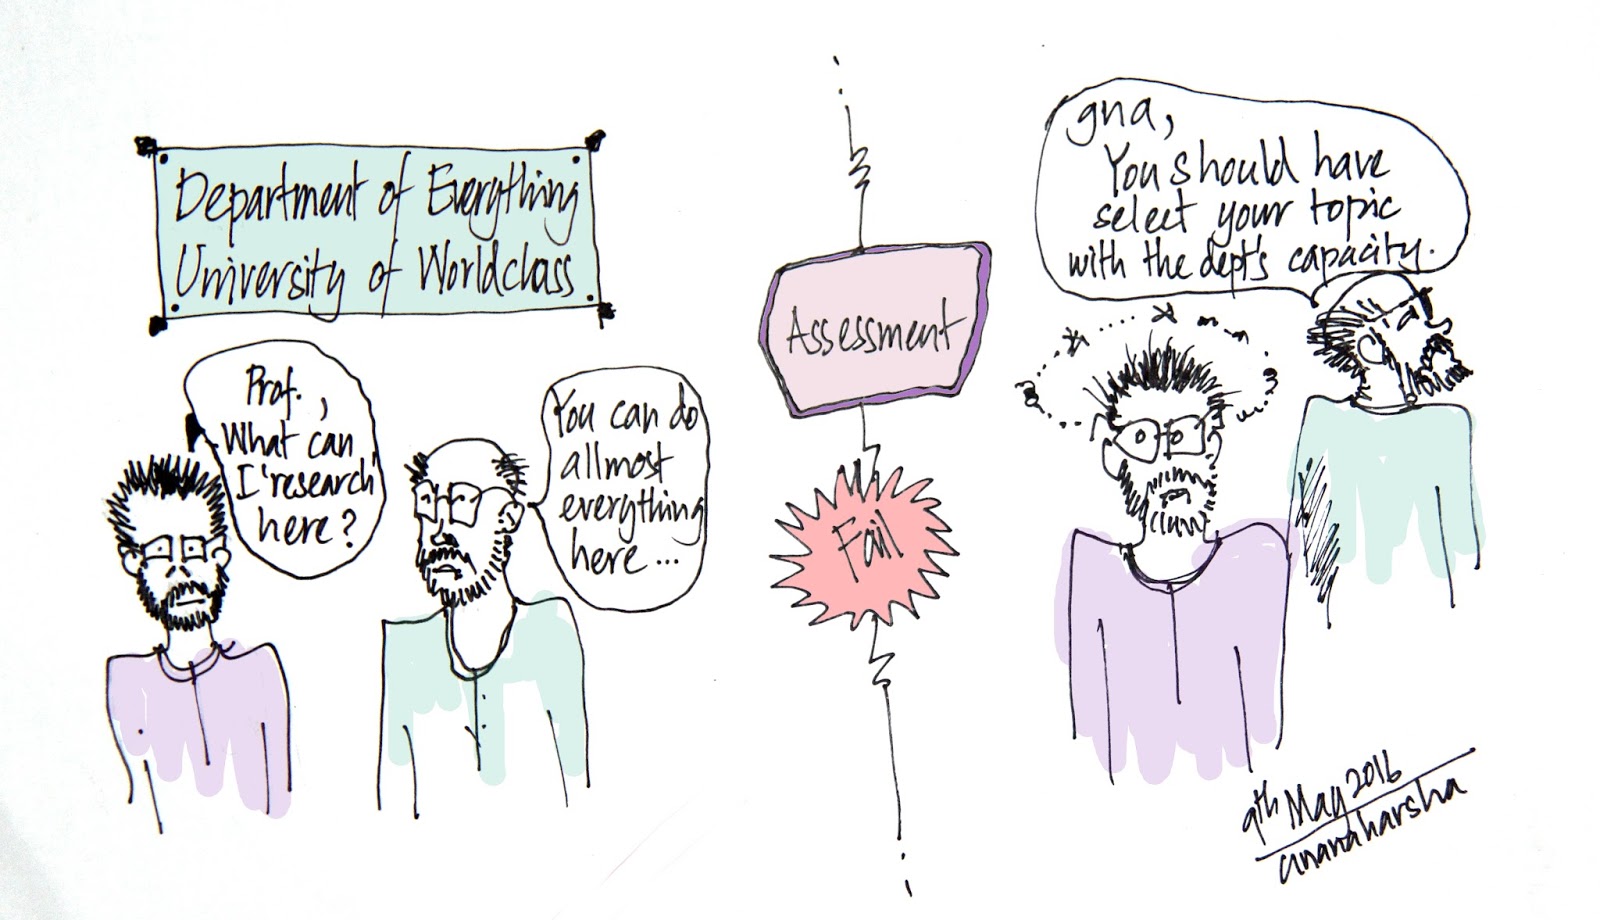 Department of Everything
University of Worldclass
Prof.,
What can
I 'research'
here?
You can do
allmost
everything
here...
Assessment
Fail
gna,
You should have
select your topic
with the dept's capacity.
9th May 2016
anandharsha